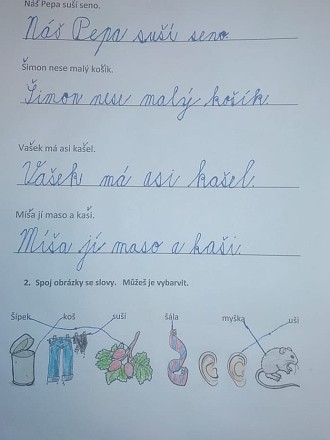 Náš Pepa suší seno.
Náš Pepa suší seno.
Šimon nese malý košík.
Šimon nese malý košík.
Vašek má asi kašel.
Vašek má asi kašel.
Míša jí maso a kaši.
Míša jí maso a kaši.
2. Spoj obrázky se slovy. Můžeš je vybarvit.
Šípek koš suší šála myška uši